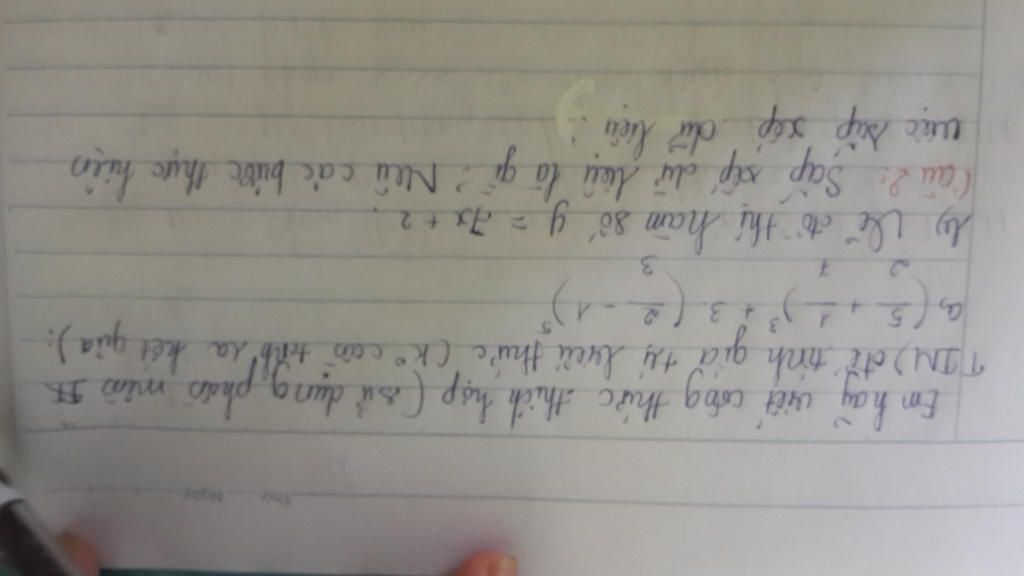 Thứ Ngày
Em hãy viết công thức thích hợp (sử dụng phần mềm
TIM) để tính giá trị biểu thức (k° cần tính ra kết quả):
a, (5/2 + 1/7)³ + 3 (2/3 - 1)⁵
b) Vẽ đồ thị hàm số y = 7x + 2.
Câu 2: Sắp xếp dữ liệu là gì? Nêu các bước thực hiện
việc sắp xếp dữ liệu.